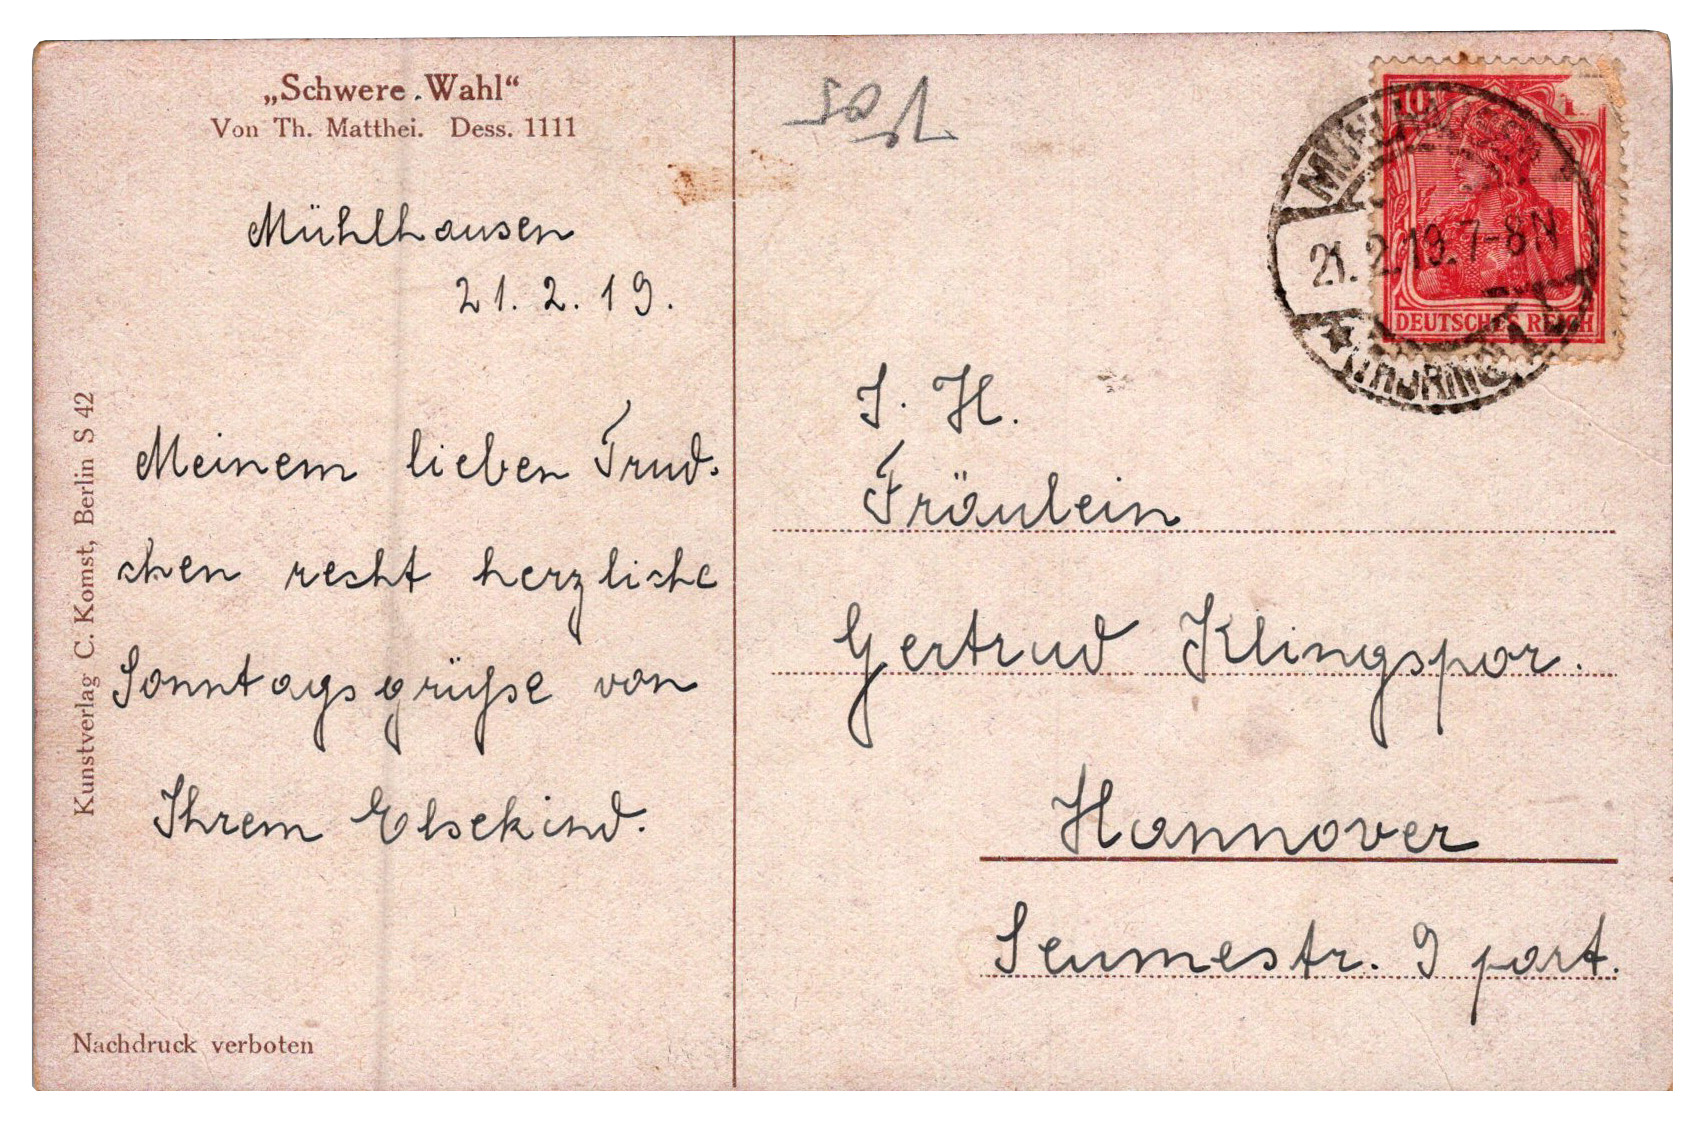 „Schwere Wahl“
Von Th. Matthei. Dess. 1111
Mühlhausen
21. 2. 19.
Meinem lieben Trud-
chen recht herzliche
Sonntagsgrüße von
Ihrem Elsekind.
Kunstverlag C. Komst, Berlin S 42
Nachdruck verboten
10
DEUTSCHES REICH
21. 2. 19. 7-8 N
J. H.
Fräulein
Gertrud Klingspor.
Hannover
Seumestr. 9 part.